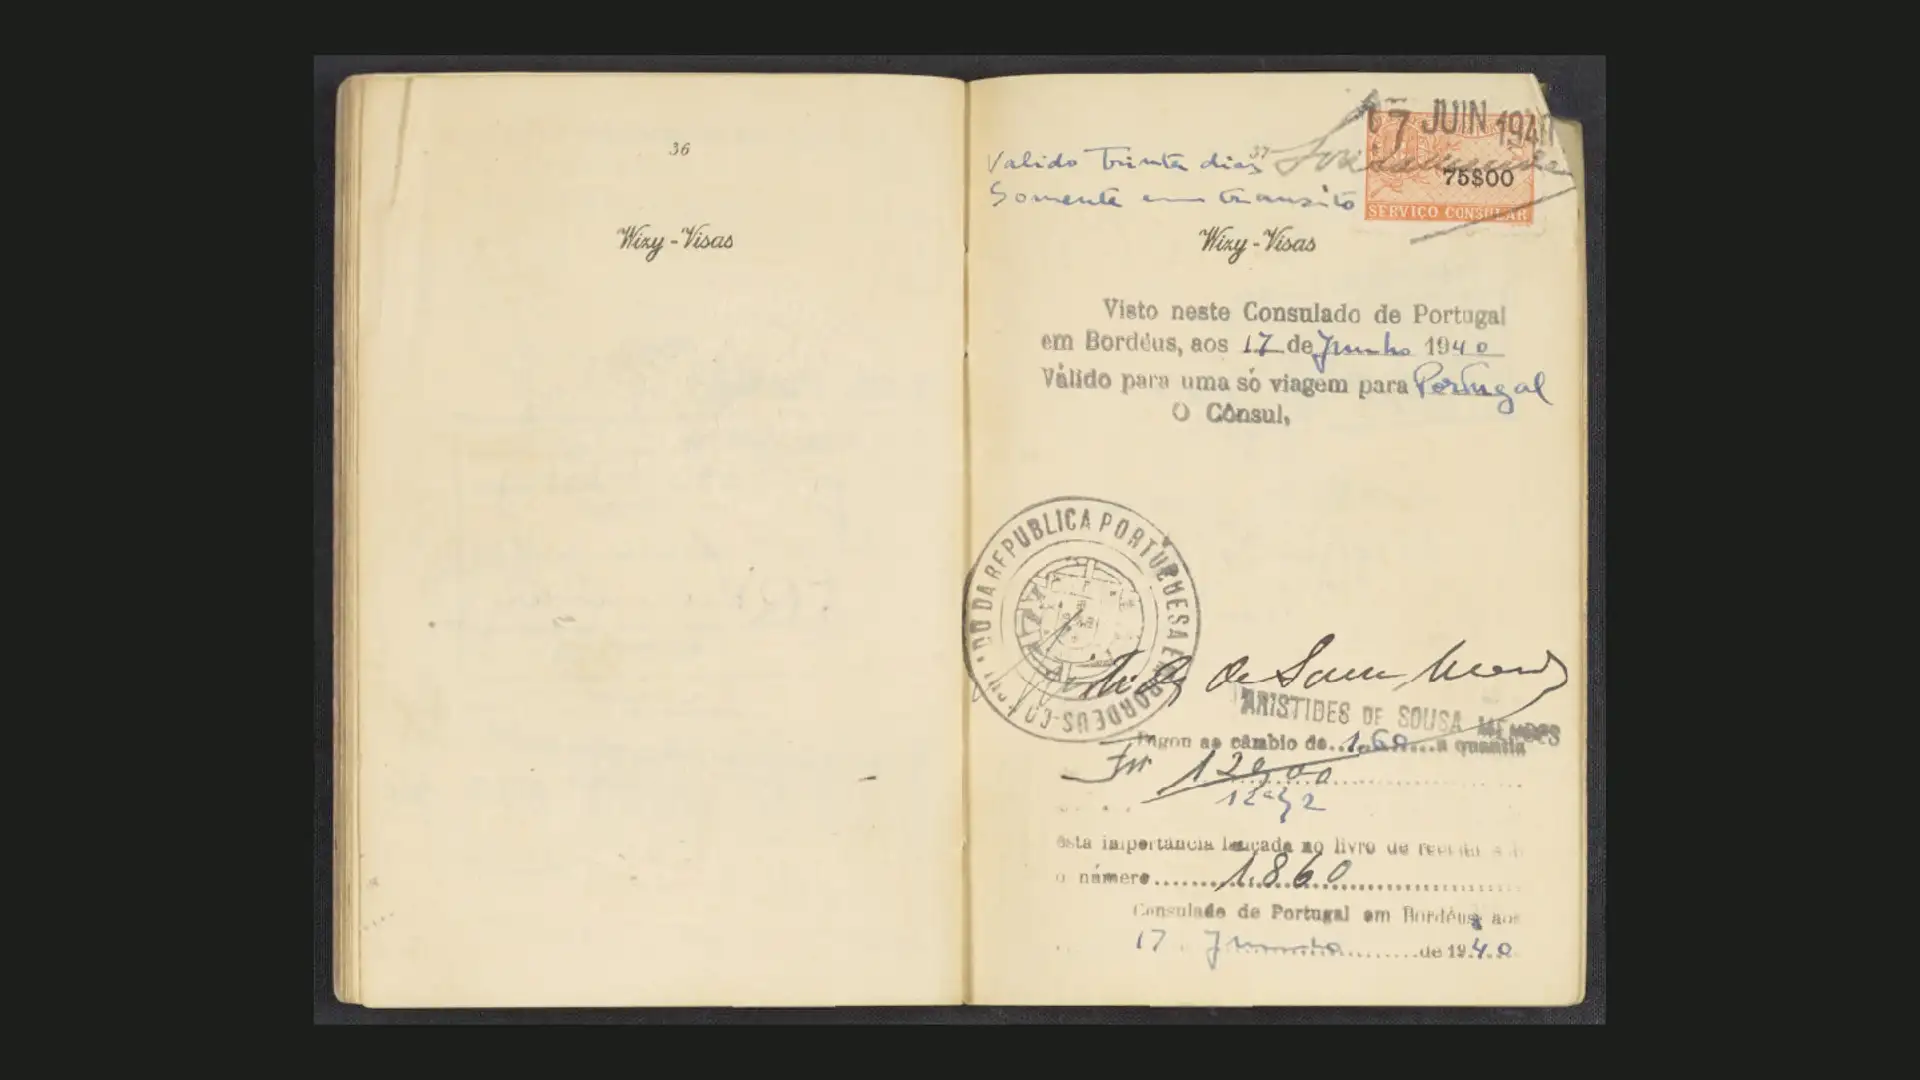 36
Wizy-Visas
17 JUIN 1940
37
Valido Trinta dias
Somente em transito
75$00
SERVIÇO CONSULAR
Wizy-Visas
Visto neste Consulado de Portugal
em Bordéus, aos 17 de Junho 1940
Válido para uma só viagem para Portugal
O Cônsul,
DO DA REPUBLICA PORTUGUESA EM BORDEUS
Aristides de Sousa Mendes
ARISTIDES DE SOUSA MENDES
Pagou ao câmbio de 1,60 a quantia
esta importância lançada no livro de receita sob
o número 1.860
Consulado de Portugal em Bordéus, aos
17 Junho de 1940